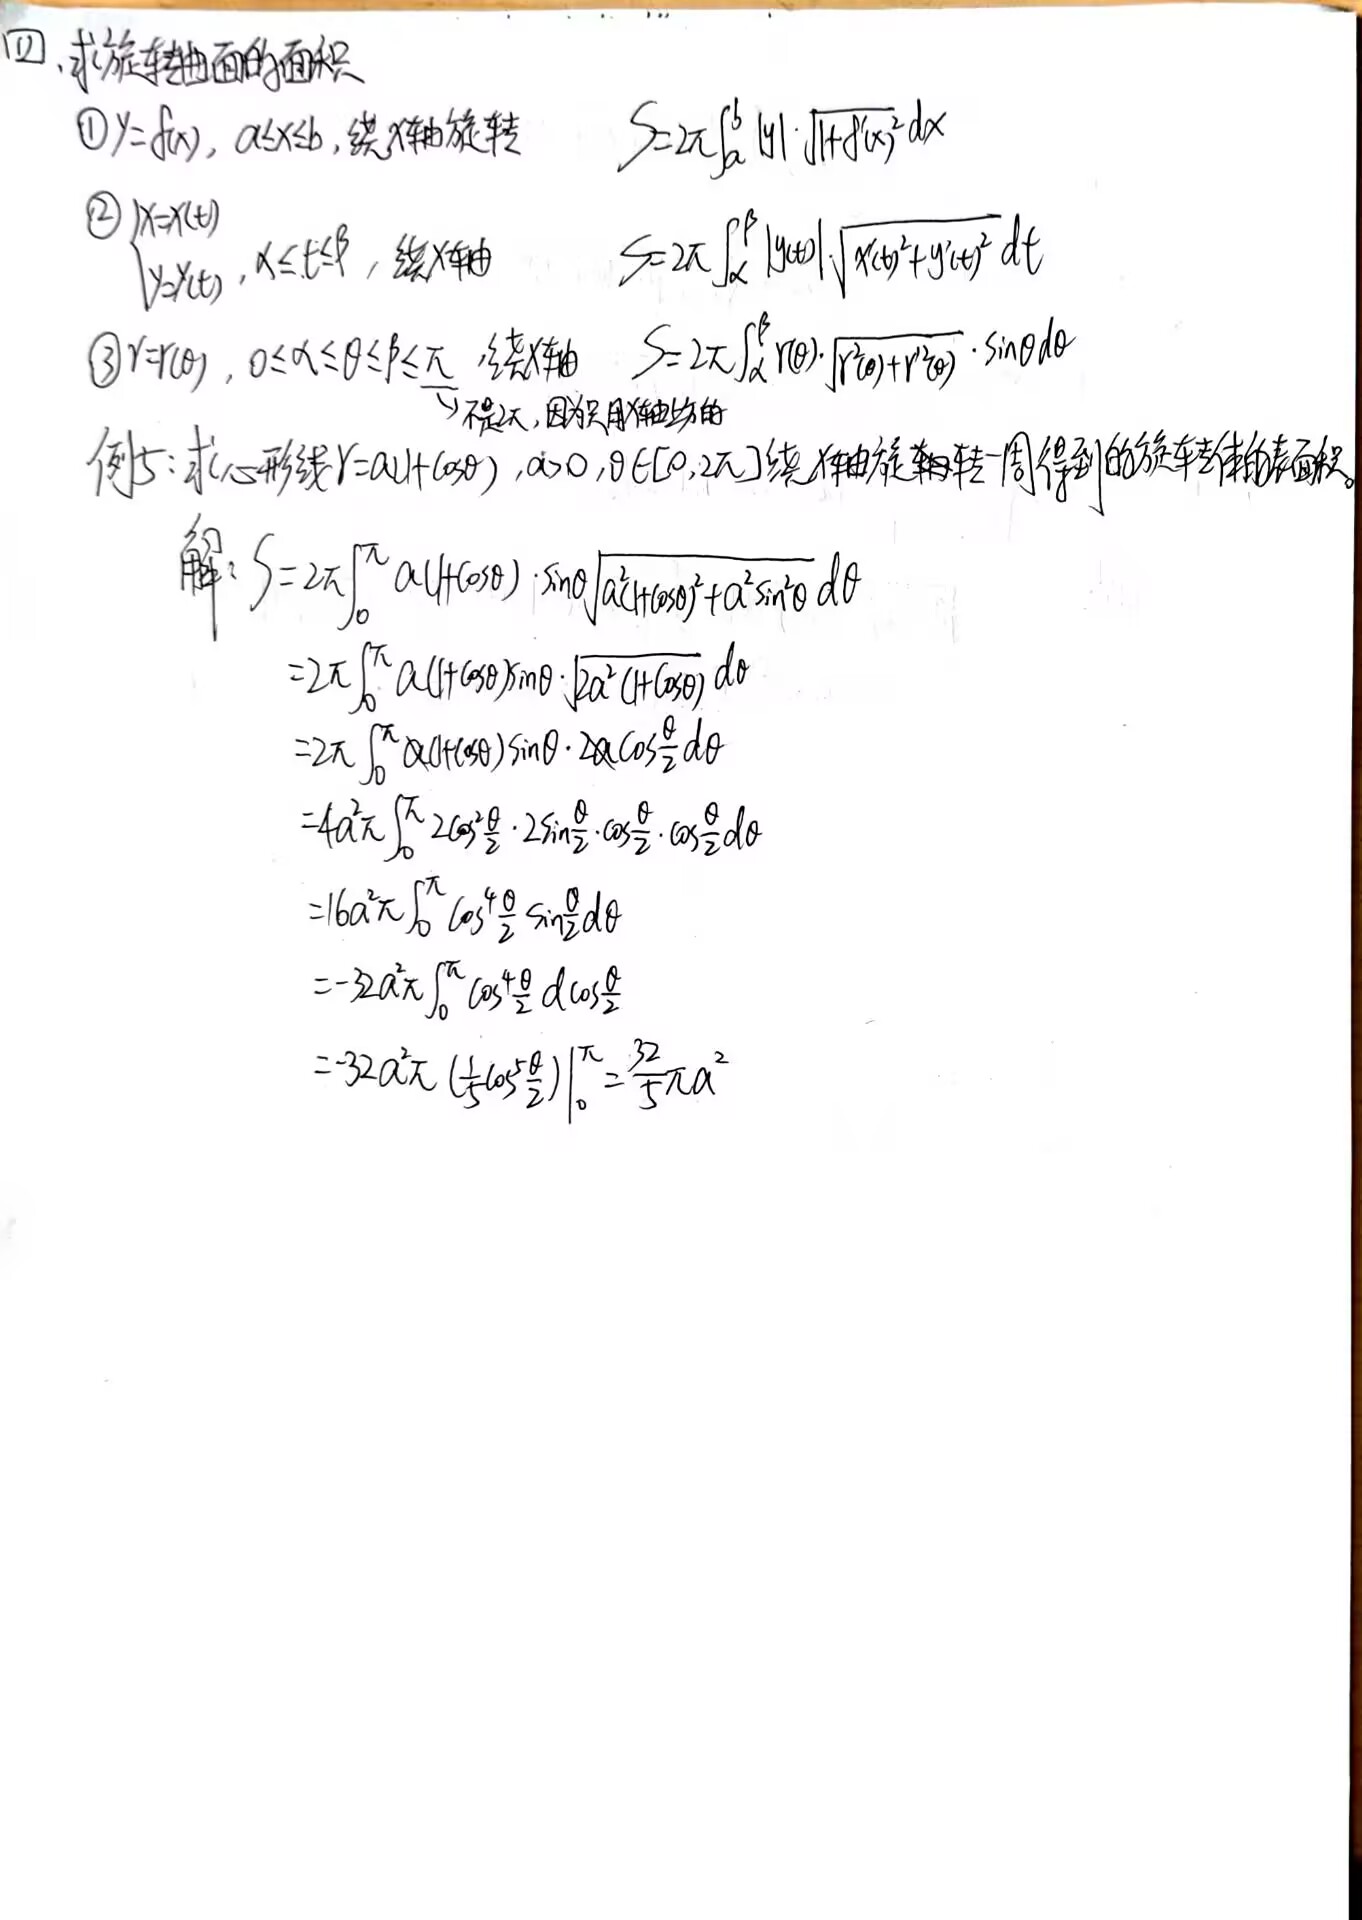 四、求旋转曲面的面积
① y=f(x), a≤x≤b, 绕x轴旋转 S=2π∫_a^b |y|·√(1+f'(x)²) dx
② {x=x(t) y=y(t), α≤t≤β, 绕x轴 S=2π∫_α^β |y(t)|·√(x'(t)²+y'(t)²) dt
③ r=r(θ), 0≤α≤θ≤β≤π, 绕x轴 S=2π∫_α^β r(θ)·√(r²(θ)+r'²(θ))·sinθdθ
↳不是2π, 因为只用x轴上方的
例5: 求心形线r=a(1+cosθ), a>0, θ∈[0,2π]绕x轴旋转一周得到的旋转体的表面积。
解: S=2π∫_0^π a(1+cosθ)·sinθ√(a²(1+cosθ)²+a²sin²θ) dθ
=2π∫_0^π a(1+cosθ)sinθ·√(2a²(1+cosθ)) dθ
=2π∫_0^π a(1+cosθ)sinθ·2a cos θ/2 dθ
=4a²π∫_0^π 2cos² θ/2·2sin θ/2·cos θ/2·cos θ/2 dθ
=16a²π∫_0^π cos⁴ θ/2 sin θ/2 dθ
=-32a²π∫_0^π cos⁴ θ/2 d cos θ/2
=-32a²π (1/5 cos⁵ θ/2)|_0^π = 32/5 πa²